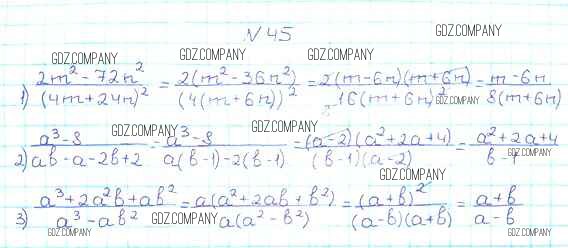 GDZ.COMPANY
N 45
GDZ.COMPANY GDZ.COMPANY GDZ.COMPANY
1) (2m² - 72n²)/(4m+24n)² = 2(m² - 36n²)/(4(m+6n))² = 2(m-6n)(m+6n)/16(m+6n)² = (m-6n)/8(m+6n)
GDZ.COMPANY
GDZ.COMPANY GDZ.COMPANY
2) (a³-8)/(ab-a-2b+2) = (a³-8)/(a(b-1)-2(b-1)) = (a-2)(a²+2a+4)/(b-1)(a-2) = (a²+2a+4)/(b-1)
GDZ.COMPANY
GDZ.COMPANY
3) (a³+2a²b+ab²)/(a³-ab²) = a(a²+2ab+b²)/a(a²-b²) = (a+b)²/(a-b)(a+b) = (a+b)/(a-b)
GDZ.COMPANY
GDZ.COMPANY GDZ.COMPANY